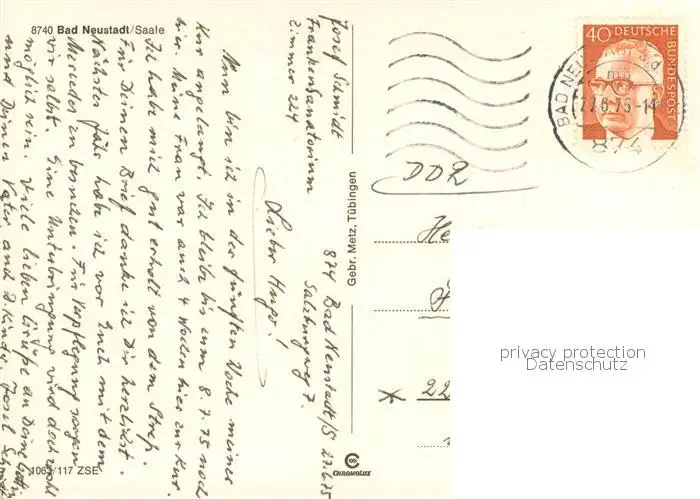 8740 Bad Neustadt/Saale
Josef Schmidt
Frankensanatorium
Zimmer 224
874 Bad Neustadt/S 27.6.75
Salzburgweg 7.
Lieber Hugo!
Nun bin ich in der fünften Woche meiner
Kur angelangt. Ich bleibe bis zum 8.7.75 noch
hier. Meine Frau war auch 4 Wochen hier zur Kur.
Ich habe mich gut erholt von dem Streß.
Für Deinen Brief danke ich Dir herzlichst.
Nächstes Jahr habe ich vor Euch mit dem
Mercedes zu besuchen. Für Verpflegung sorgen
wir selbst. Eine Unterbringung wird doch wohl
möglich sein. Viele lieben Grüße an Deine
und Deinen Vater und Kinder. Josef Schmidt
1063/117 ZSE
Gebr. Metz, Tübingen
CHROMOLUX
40 DEUTSCHE
BUNDESPOST
BAD NEU
27.6.75-14
874
DDR
He
* 22
privacy protection
Datenschutz